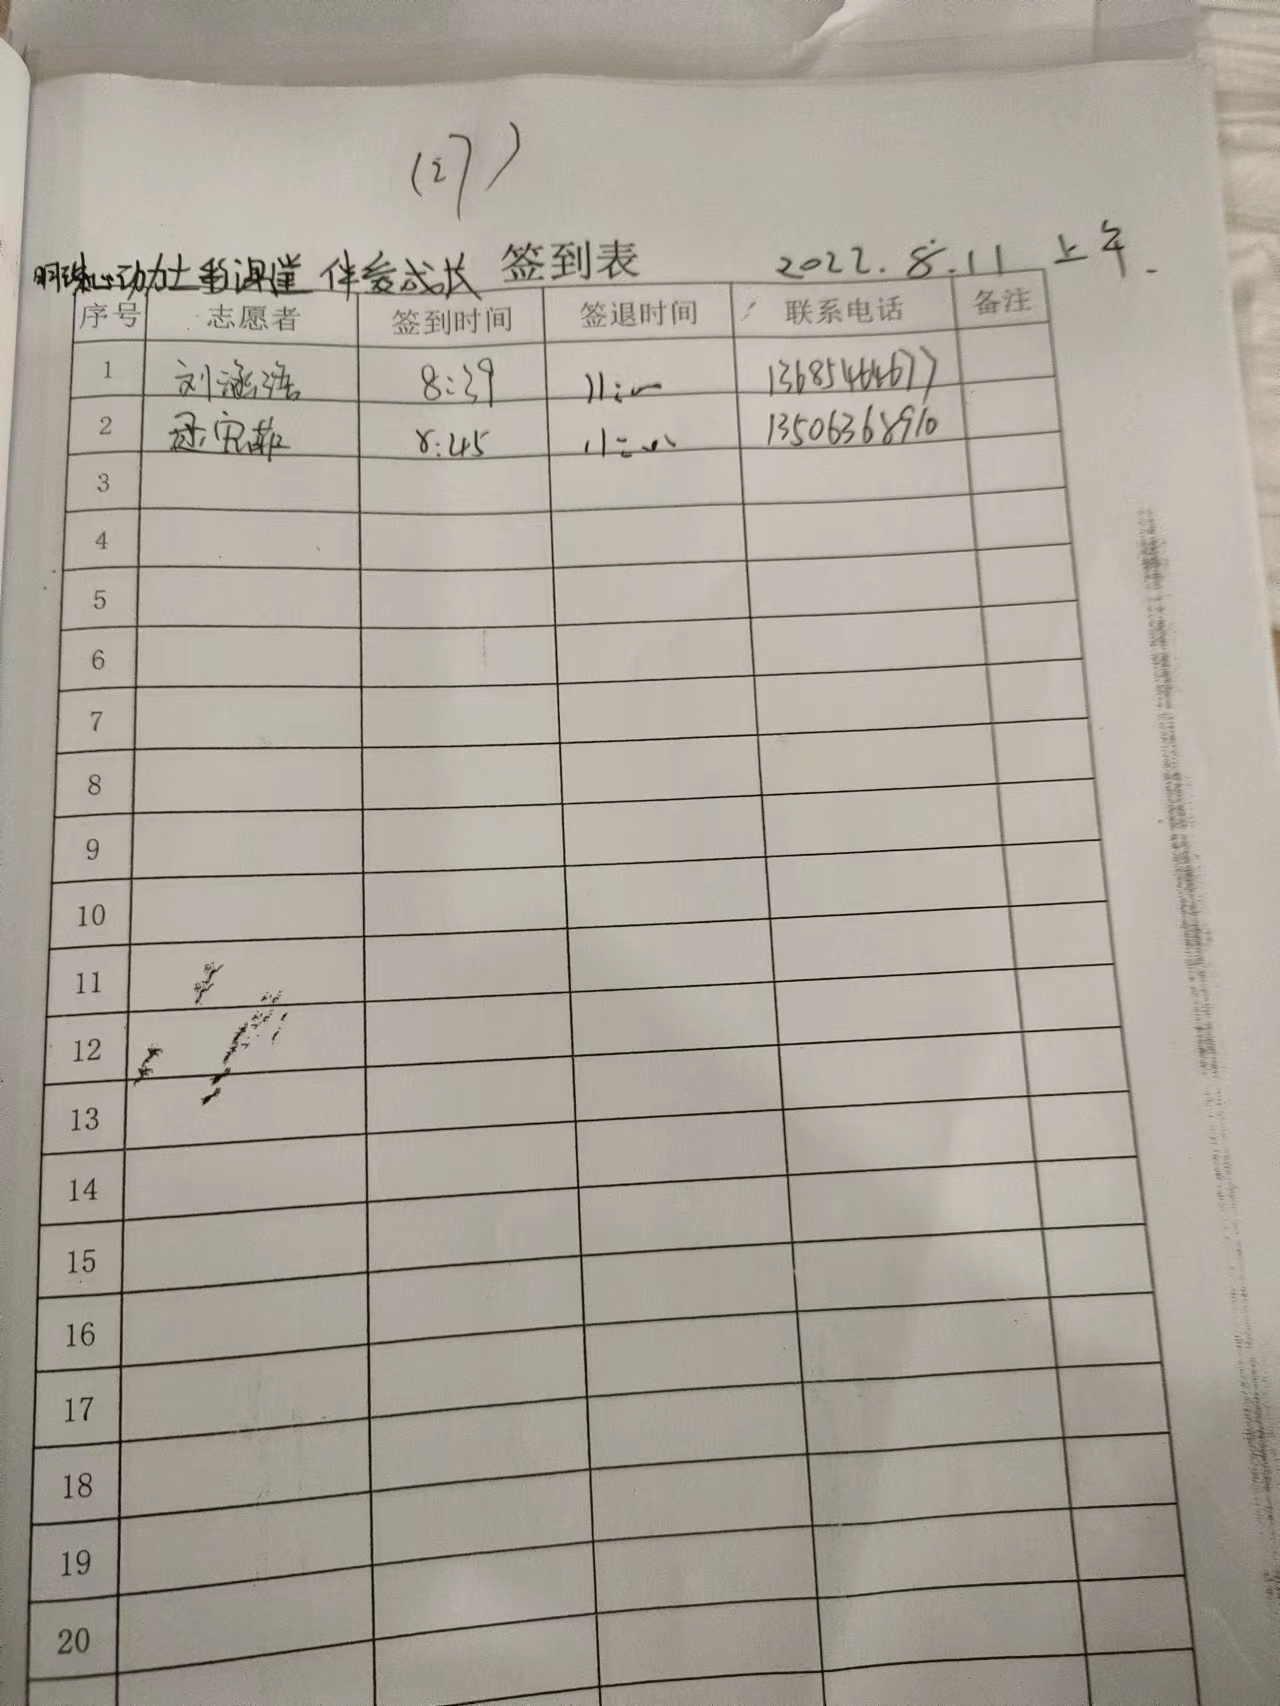 (27)
伴爱成长 签到表 2022.8.11 上午.
序号 志愿者 签到时间 签退时间 联系电话 备注
1 刘涵浩 8:39 11:00 13685464677
2 8:45 11:00 13506368910
3
4
5
6
7
8
9
10
11
12
13
14
15
16
17
18
19
20